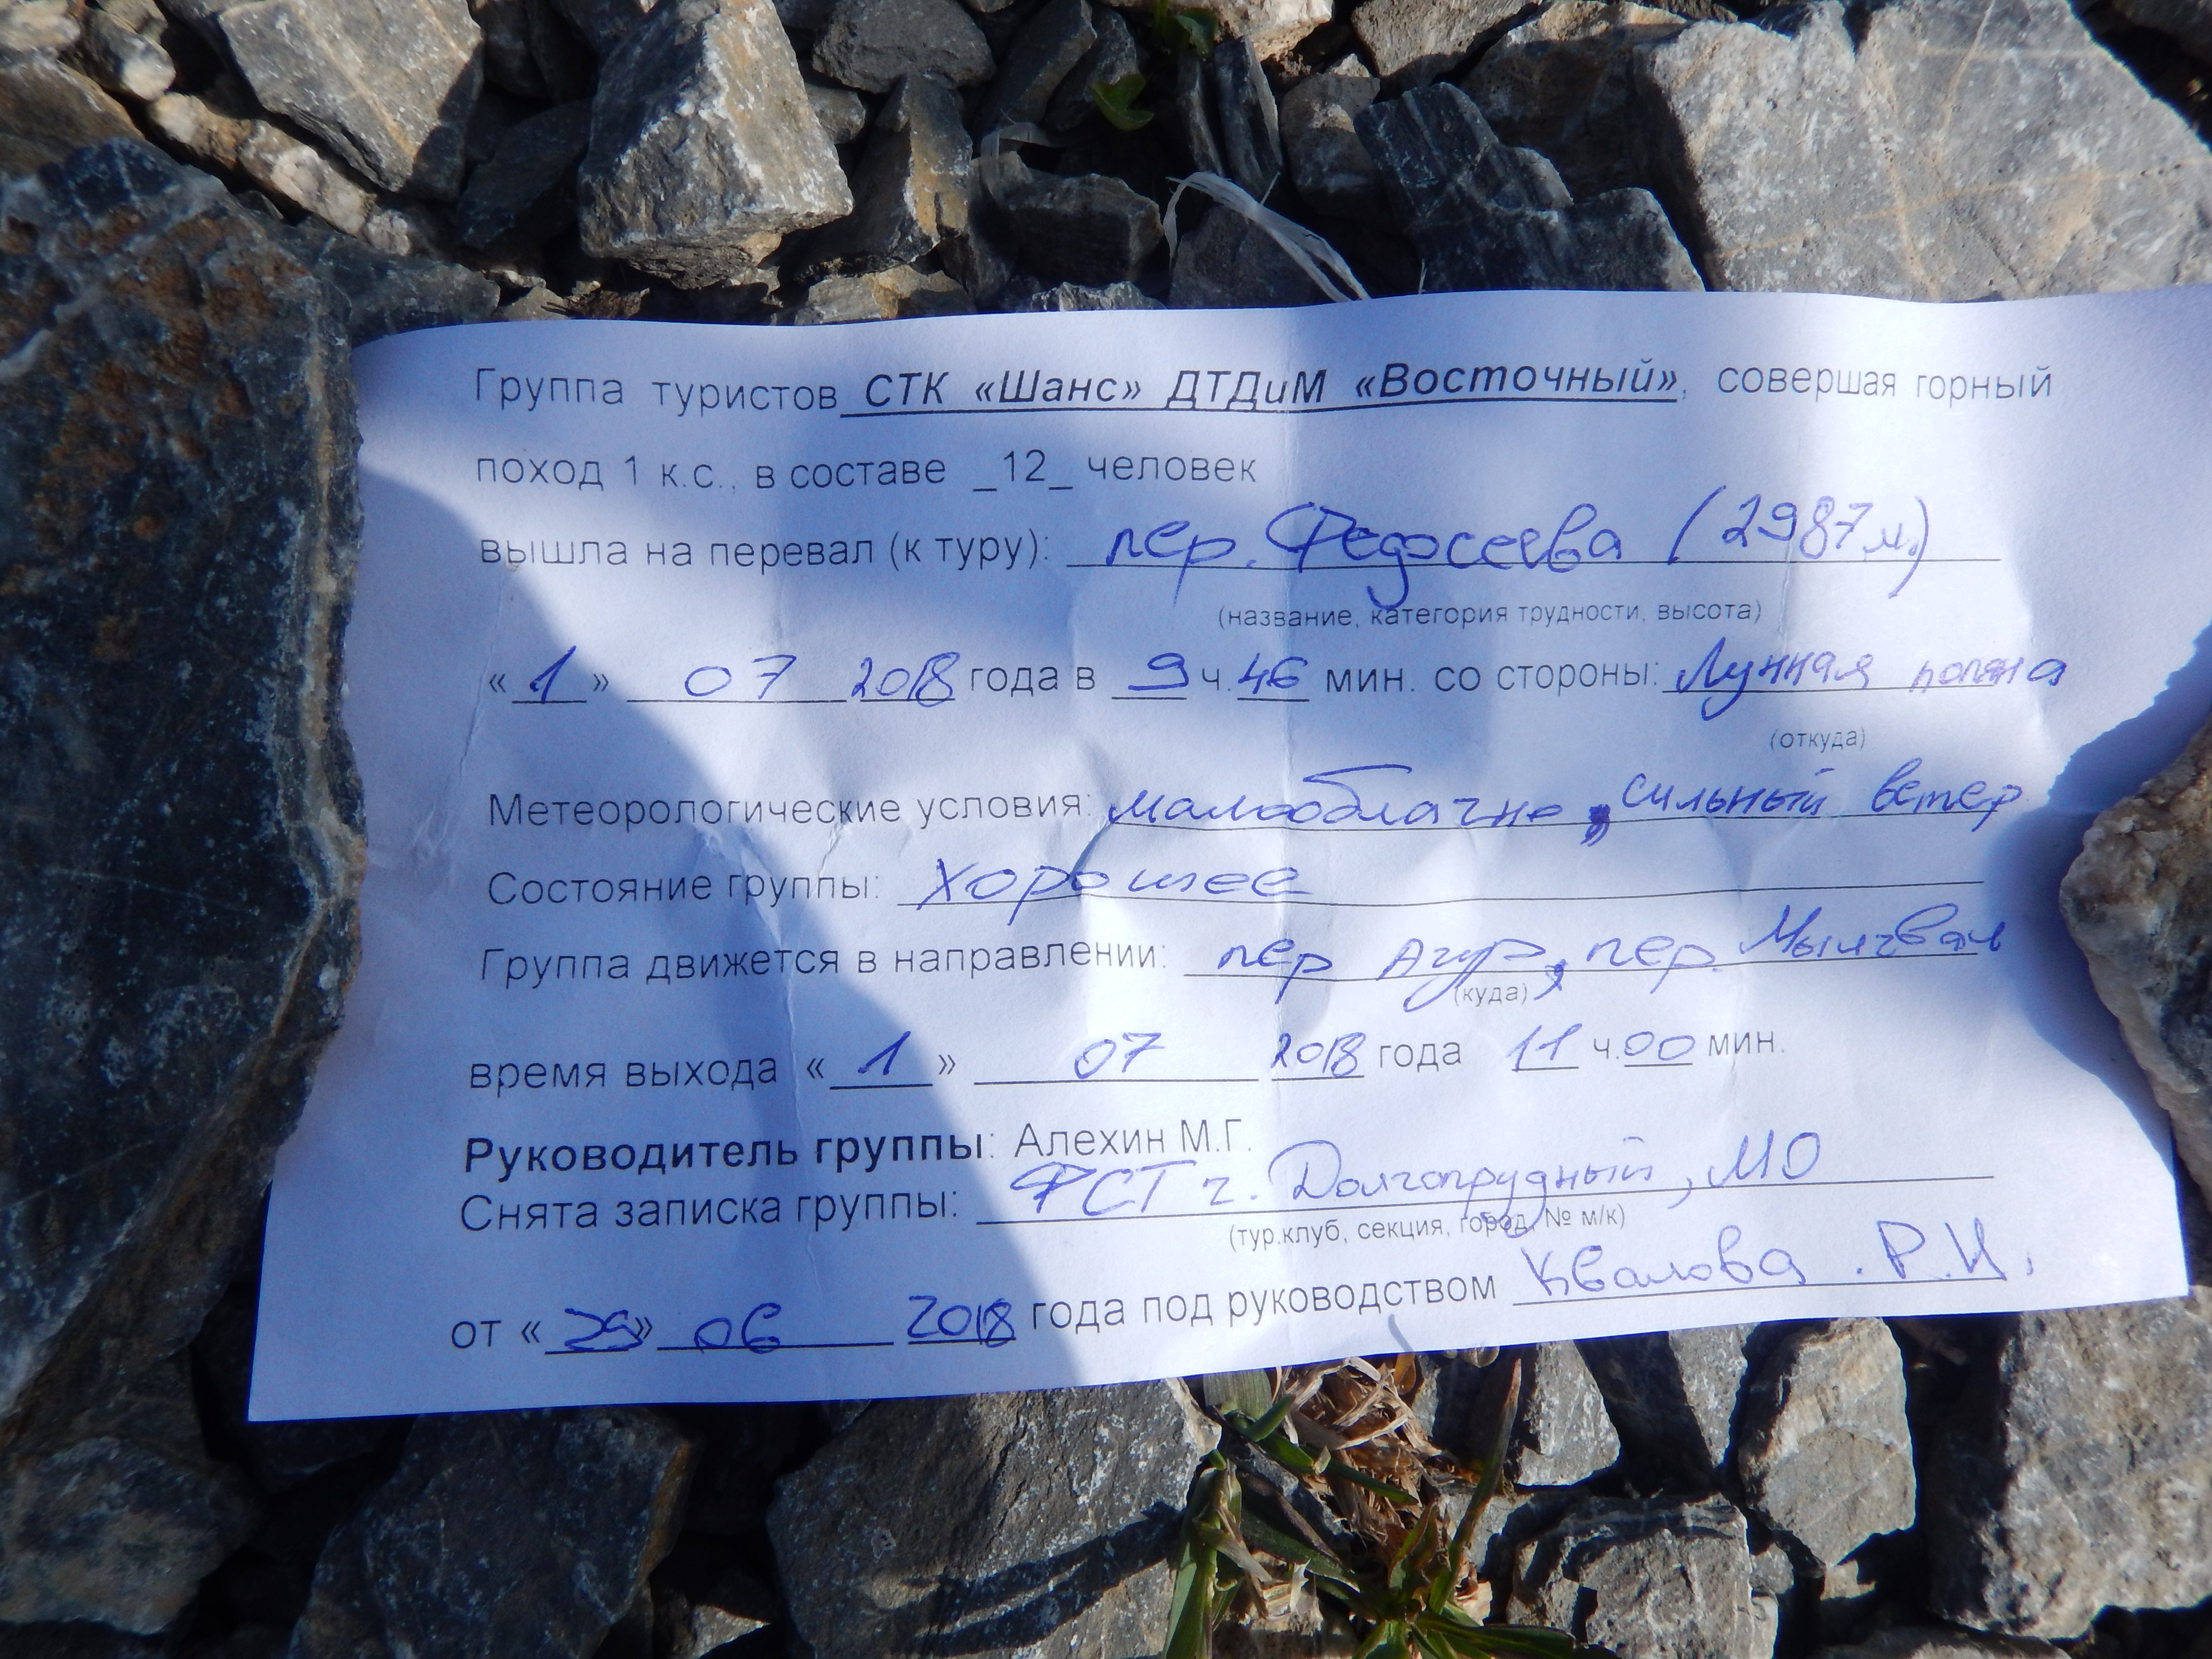 Группа туристов СТК «Шанс» ДТДиМ «Восточный», совершая горный
поход 1 к.с., в составе _12_ человек
вышла на перевал (к туру): пер. Федосеева (2987м.)
(название, категория трудности, высота)
«1» 07 2018 года в 9 ч. 46 мин. со стороны: Лунная поляна
(откуда)
Метеорологические условия: малооблачно, сильный ветер
Состояние группы: хорошее
Группа движется в направлении: пер Агур, пер.
(куда)
время выхода «1» 07 2018 года 11 ч.00 мин.
Руководитель группы: Алехин М.Г.
Снята записка группы: ФСТ г. Долгопрудный, МО
(тур.клуб, секция, город, № м/к)
от «29» 06 2018 года под руководством Квалова Р.И.